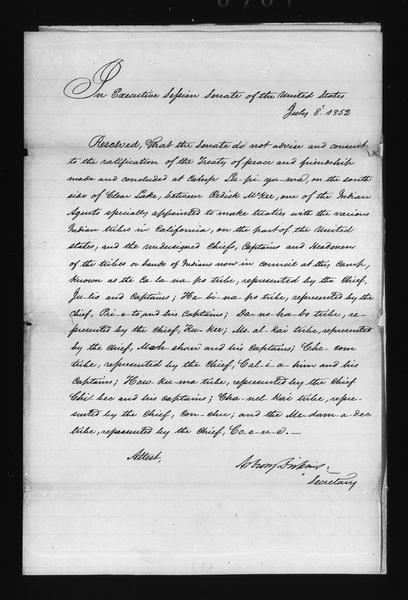 In Executive Session Senate of the United States
July 8, 1852
Resolved, That the Senate do not advise and consent
to the ratification of the Treaty of peace and friendship
made and concluded at Camp Lu-pi-yu-ma, on the south
side of Clear Lake, between Redick McKee, one of the Indian
Agents specially appointed to make treaties with the various
Indian tribes in California, on the part of the United
States, and the undersigned Chiefs, Captains and Headmen
of the tribes or bands of Indians now in council at this Camp,
known as the Ca-la-na-po tribe, represented by the Chief,
Ju-lio and Captains; Ha-bi-na-po tribe, represented by the
Chief, Pri-e-to and his Captains; Da-no-ha-bo tribe, re-
presented by the Chief, Ku-kee; Mo-al-kai tribe, represented
by the Chief, Mosh-show and his Captains; Che-com
tribe, represented by the Chief, Cal-i-a-him and his
Captains; How-ku-ma tribe, represented by the Chief
Chil-bee and his Captains; Cha-nel-kai tribe, repre-
sented by the Chief, Con-chu; and the Me-dam-a-dec
tribe, represented by the Chief, Co-e-u-e. —
Attest,
Asbury Dickins,
Secretary